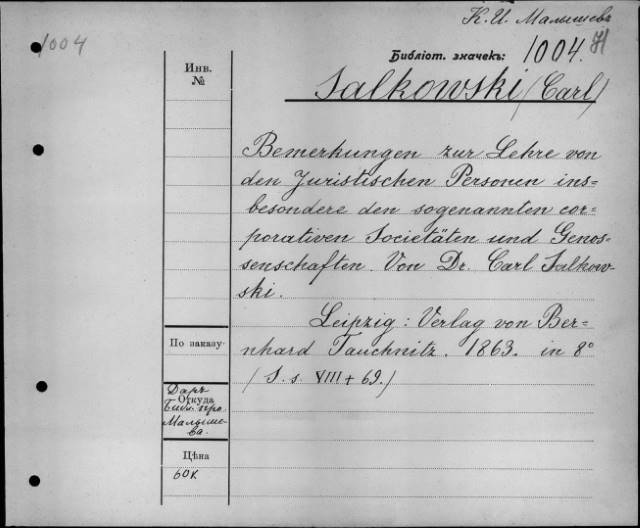 К. И. Малышевъ
1004
Библіот. значекъ: 1004.
Инв.
№
Salkowski (Carl)
Bemerkungen zur Lehre von
den Juristischen Personen ins=
besondere den sogenannten cor=
porativen Societäten und Genos=
senschaften. Von Dr. Carl Salkow=
ski.
Leipzig: Verlag von Ber=
nhard Tauchnitz. 1863. in 8°
(S. s. VIII + 69.)
По заказу
Даръ
Откуда
Библ. про.
Малыше=
ва.
Цѣна
60 к